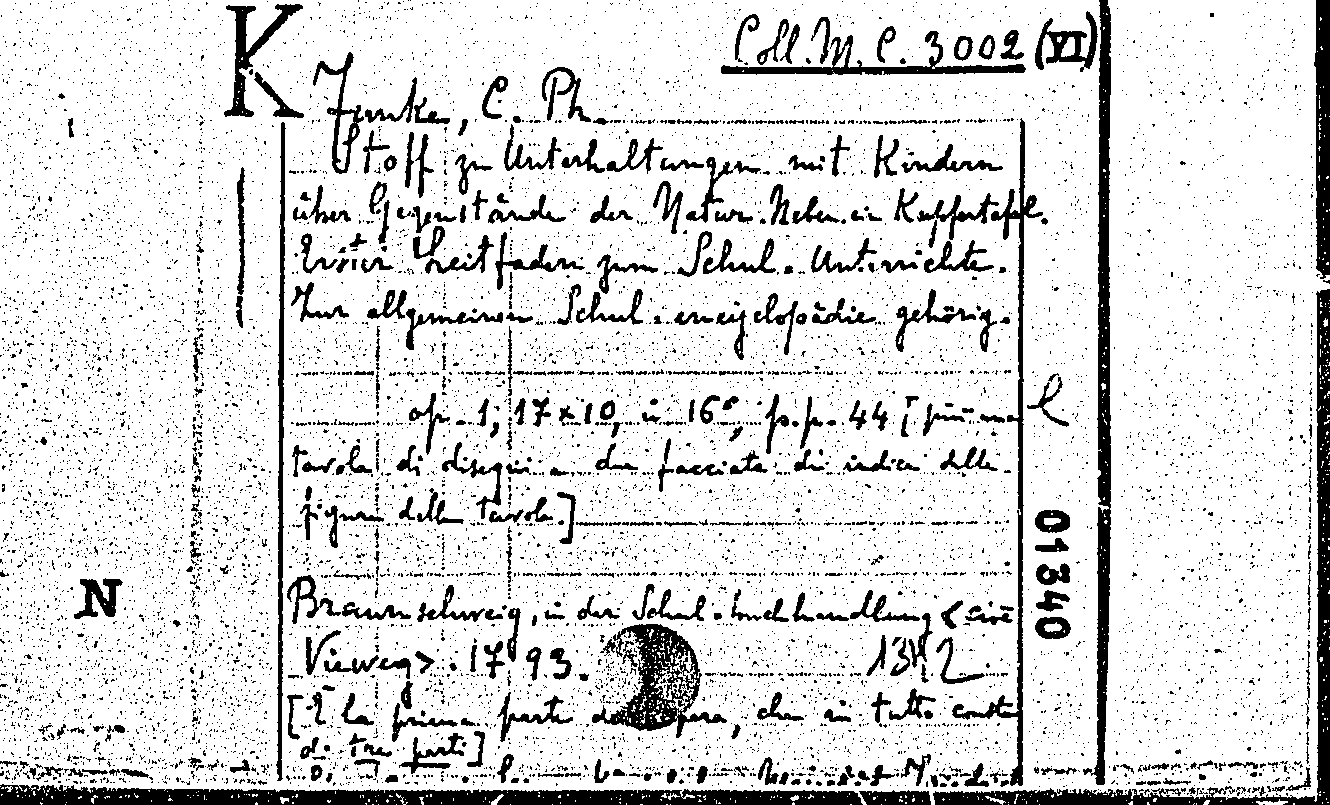 K
Coll. M. C. 3002 (VI)
Funke, C. Ph.
Stoff zu Unterhaltungen mit Kindern
über Gegenstände der Natur. Neben ein Kupfertafel.
Erster Leitfaden zum Schul-Unterrichte.
Zur allgemeinen Schul-encyclopädie gehörig.
op. 1, 17 x 10, in 16°, p.p. 44 [più una
tavola di disegni e due facciate di indice delle
figure della tavola.]
01340
N
Braunschweig, in der Schul-buchhandlung <cioè
Vieweg>. 1793.
[È la prima parte opera, che in tutto consta
di tre parti]